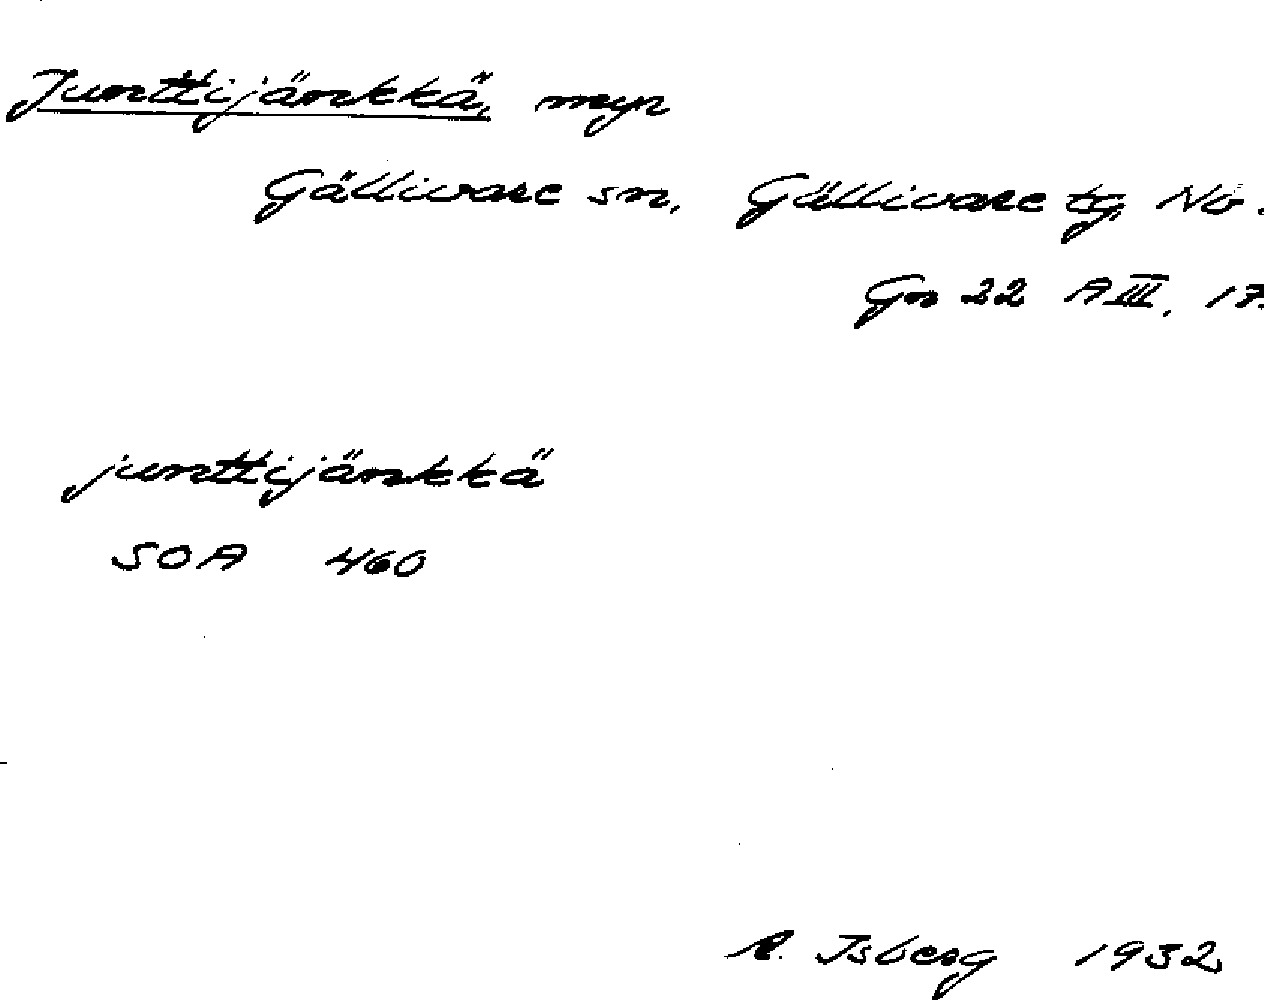 Junttijänkkä, myr
Gällivare sn, Gällivare tg, Nb.
Gn 22 AIII. 17.
junttijänkkä
SOA 460
R. Isberg 1932